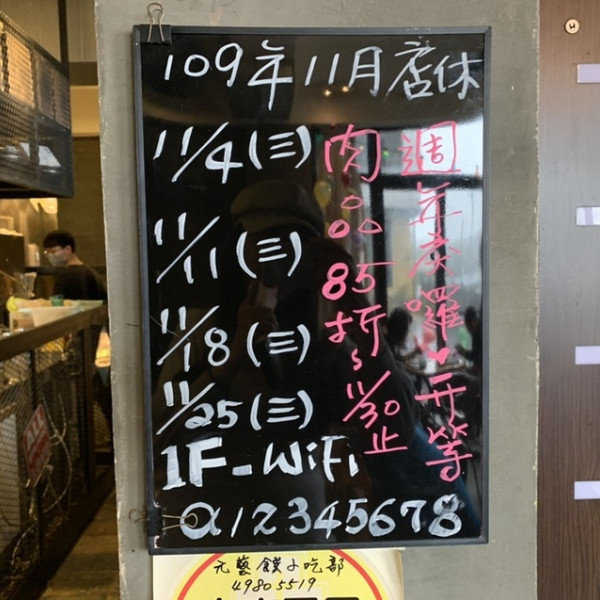 109年11月店休
11/4(三)
11/11(三)
11/18(三)
11/25(三)
1F-WiFi
a12345678
週年慶囉♥一等
肉品85折~11/30止
元藝饌小吃部
49805519